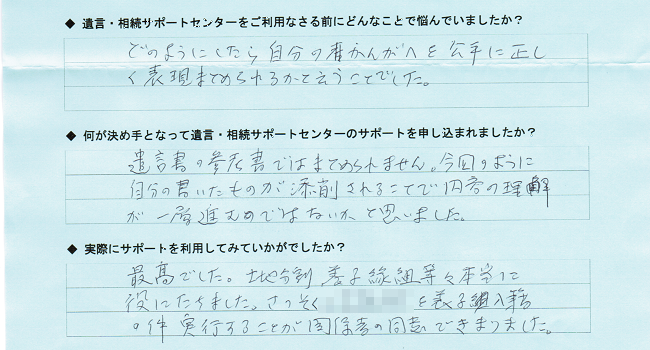 ◆ 遺言・相続サポートセンターをご利用なさる前にどんなことで悩んでいましたか?
どのようにしたら自分の考かんがへを公平に正し
く表現まとめられるかと云うことでした。
◆ 何が決め手となって遺言・相続サポートセンターのサポートを申し込まれましたか?
遺言書の参考書ではまとめられません。今回のように
自分の書いたものが添削されることで内容の理解
が一層進むのではないかと思いました。
◆ 実際にサポートを利用してみていかがでしたか?
最高でした。土地分割 養子縁組等々本当に
役にたちました。さっそく を養子入籍
の件 実行することが関係者の同意 できまりました。